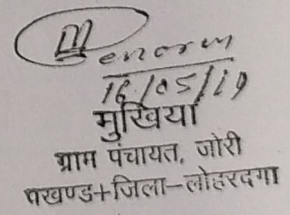 16/05/19
मुखिया
ग्राम पंचायत, जोरी
प्रखण्ड+जिला-लोहरदगा